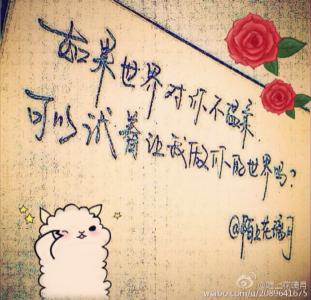 如果世界对你不温柔
可以试着让我做你的世界吗？
@陌上花满月
@陌上花满月
weibo.com/u/2089641675